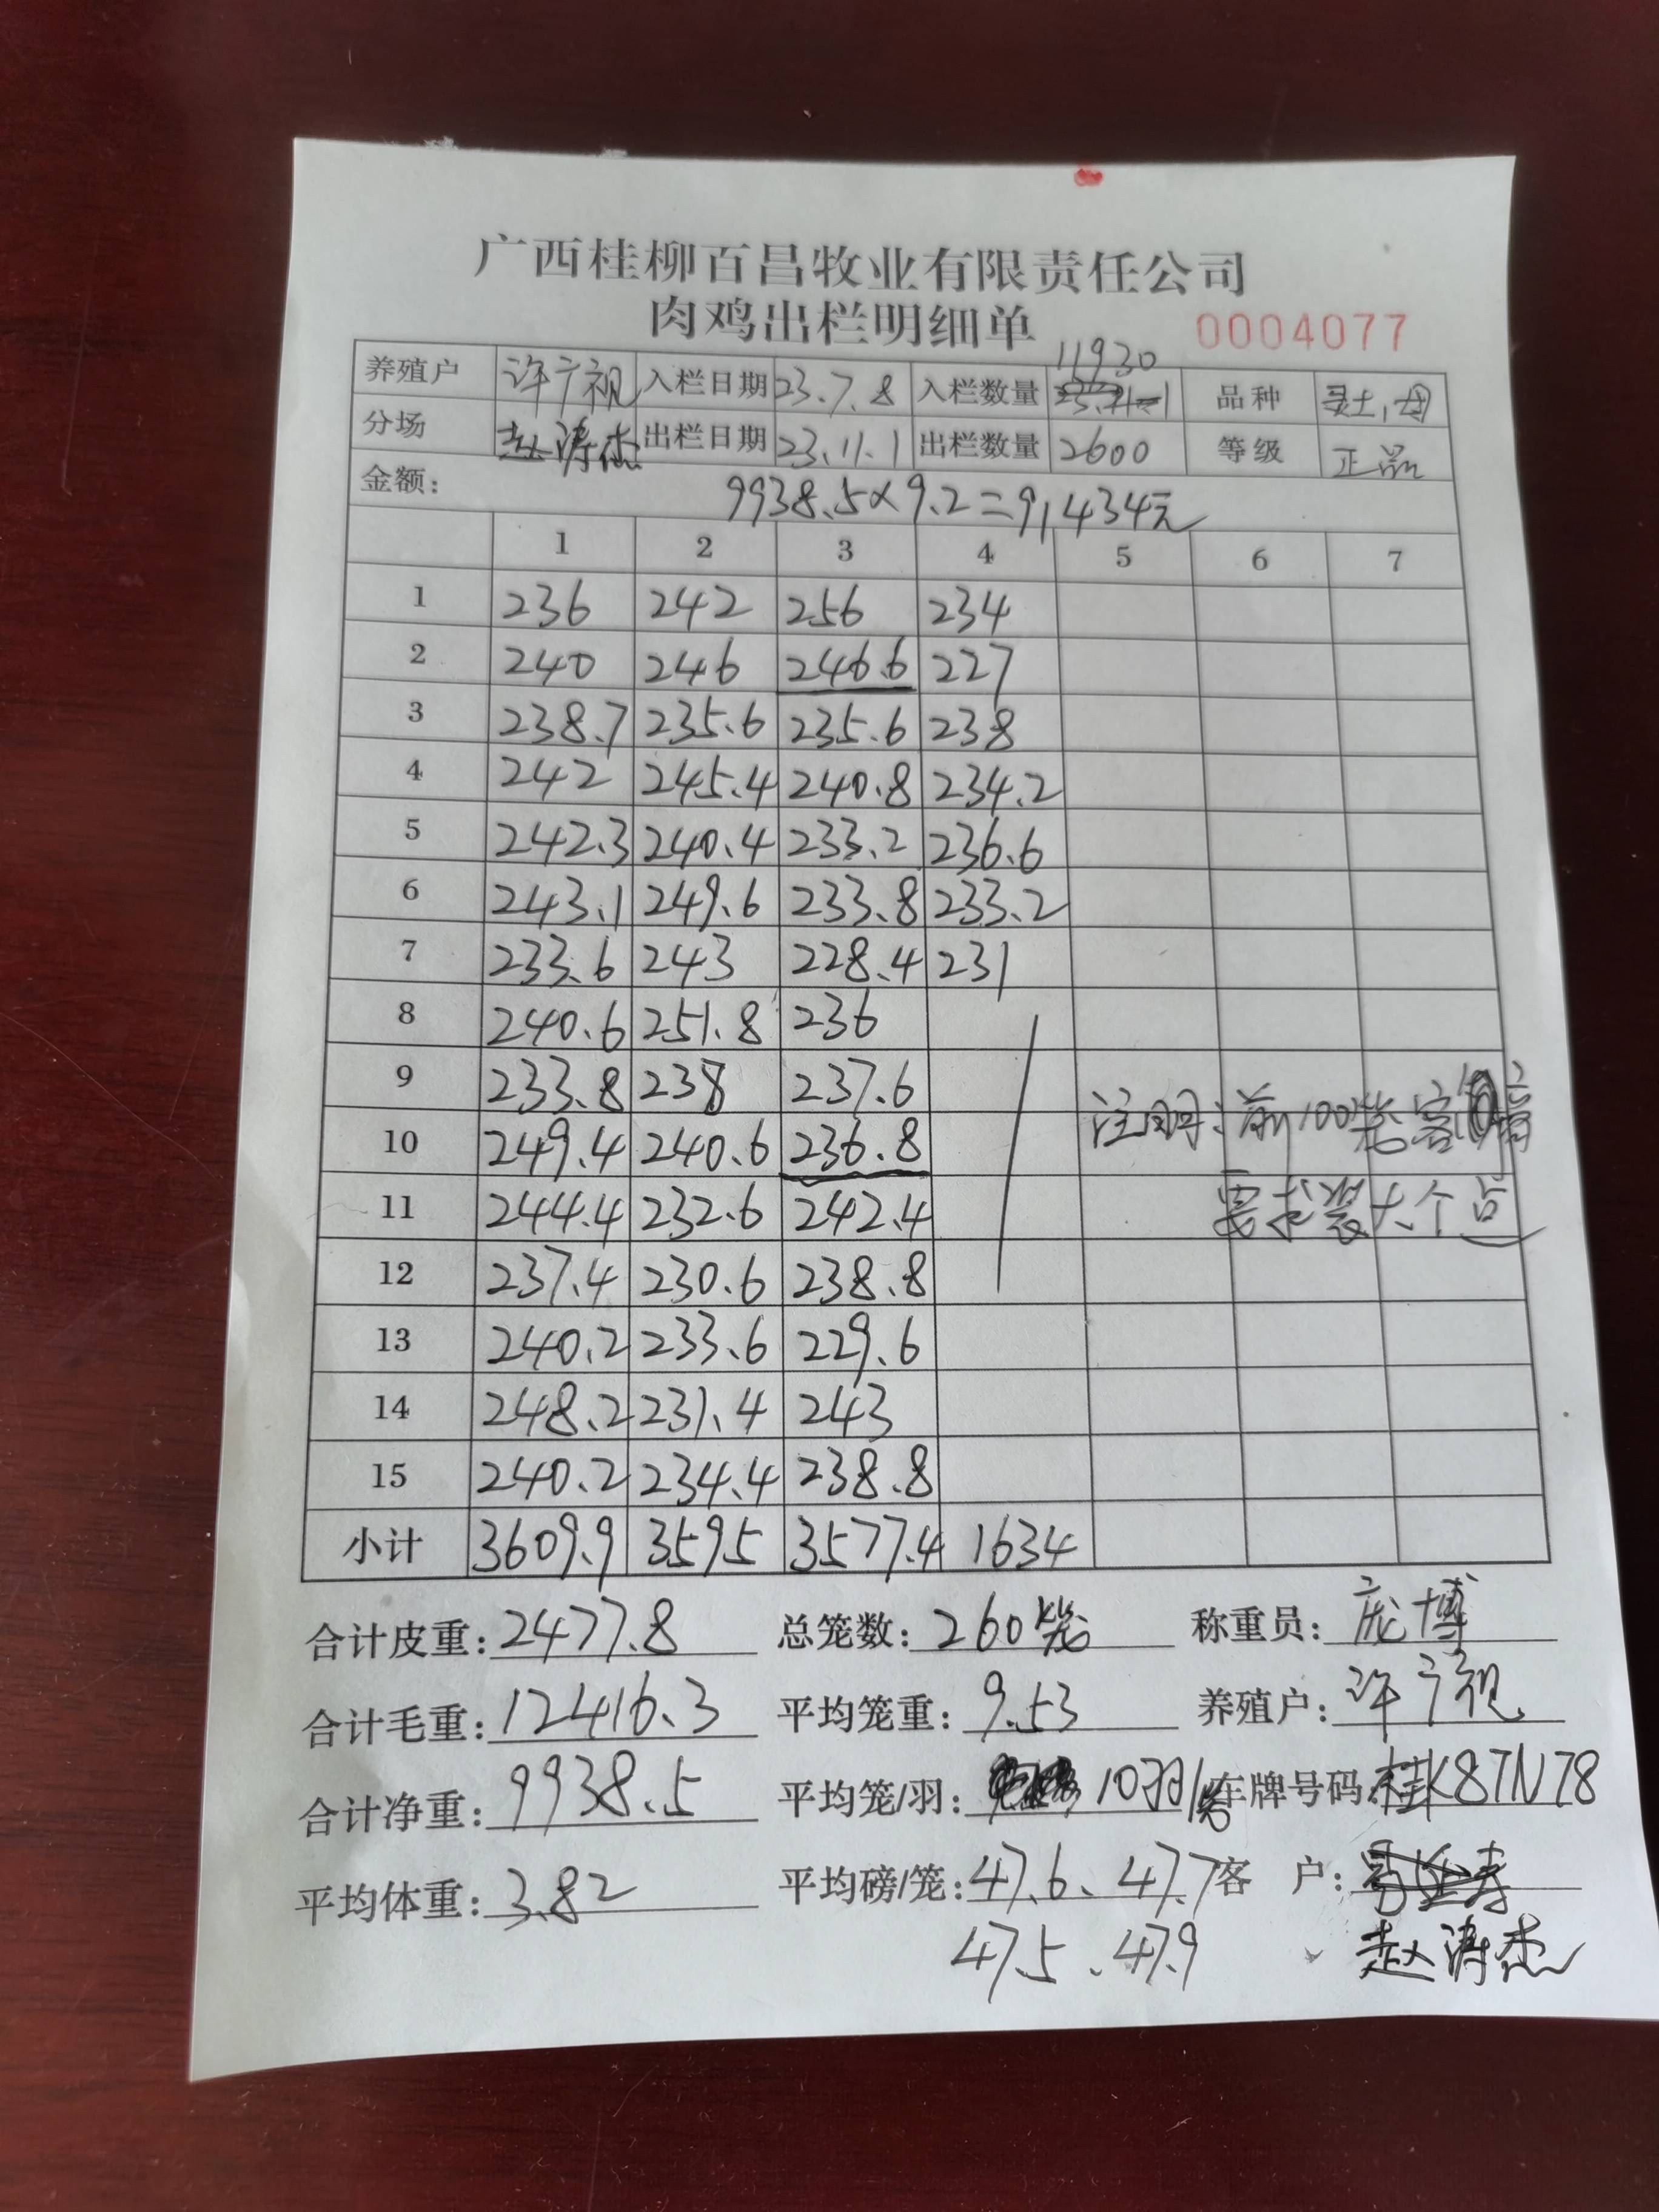 广西桂柳百昌牧业有限责任公司
肉鸡出栏明细单 0004077
养殖户 许广视 入栏日期 23.7.8 入栏数量 11930 品种 灵土,母
分场 赵涛杰 出栏日期 23.11.1 出栏数量 2600 等级 正品
金额: 9938.5×9.2=91434元
1 2 3 4 5 6 7
1 236 242 256 234
2 240 246 246.6 227
3 238.7 235.6 235.6 238
4 242 245.4 240.8 234.2
5 242.3 240.4 233.2 236.6
6 243.1 249.6 233.8 233.2
7 233.6 243 228.4 231
8 240.6 251.8 236
9 233.8 238 237.6
10 249.4 240.6 236.8
注明:前100笼客
11 244.4 232.6 242.4
要求装大个点
12 237.4 230.6 238.8
13 240.2 233.6 229.6
14 248.2 231.4 243
15 240.2 234.4 238.8
小计 3609.9 3595 3577.4 1634
合计皮重: 2477.8 总笼数: 260笼 称重员: 庞博
合计毛重: 12416.3 平均笼重: 9.53 养殖户: 许广视
合计净重: 9938.5 平均笼/羽: 10羽/笼 车牌号码: 桂K87N78
平均体重: 3.82 平均磅/笼: 47.6、47.7 客 户:
47.5、47.9 赵涛杰